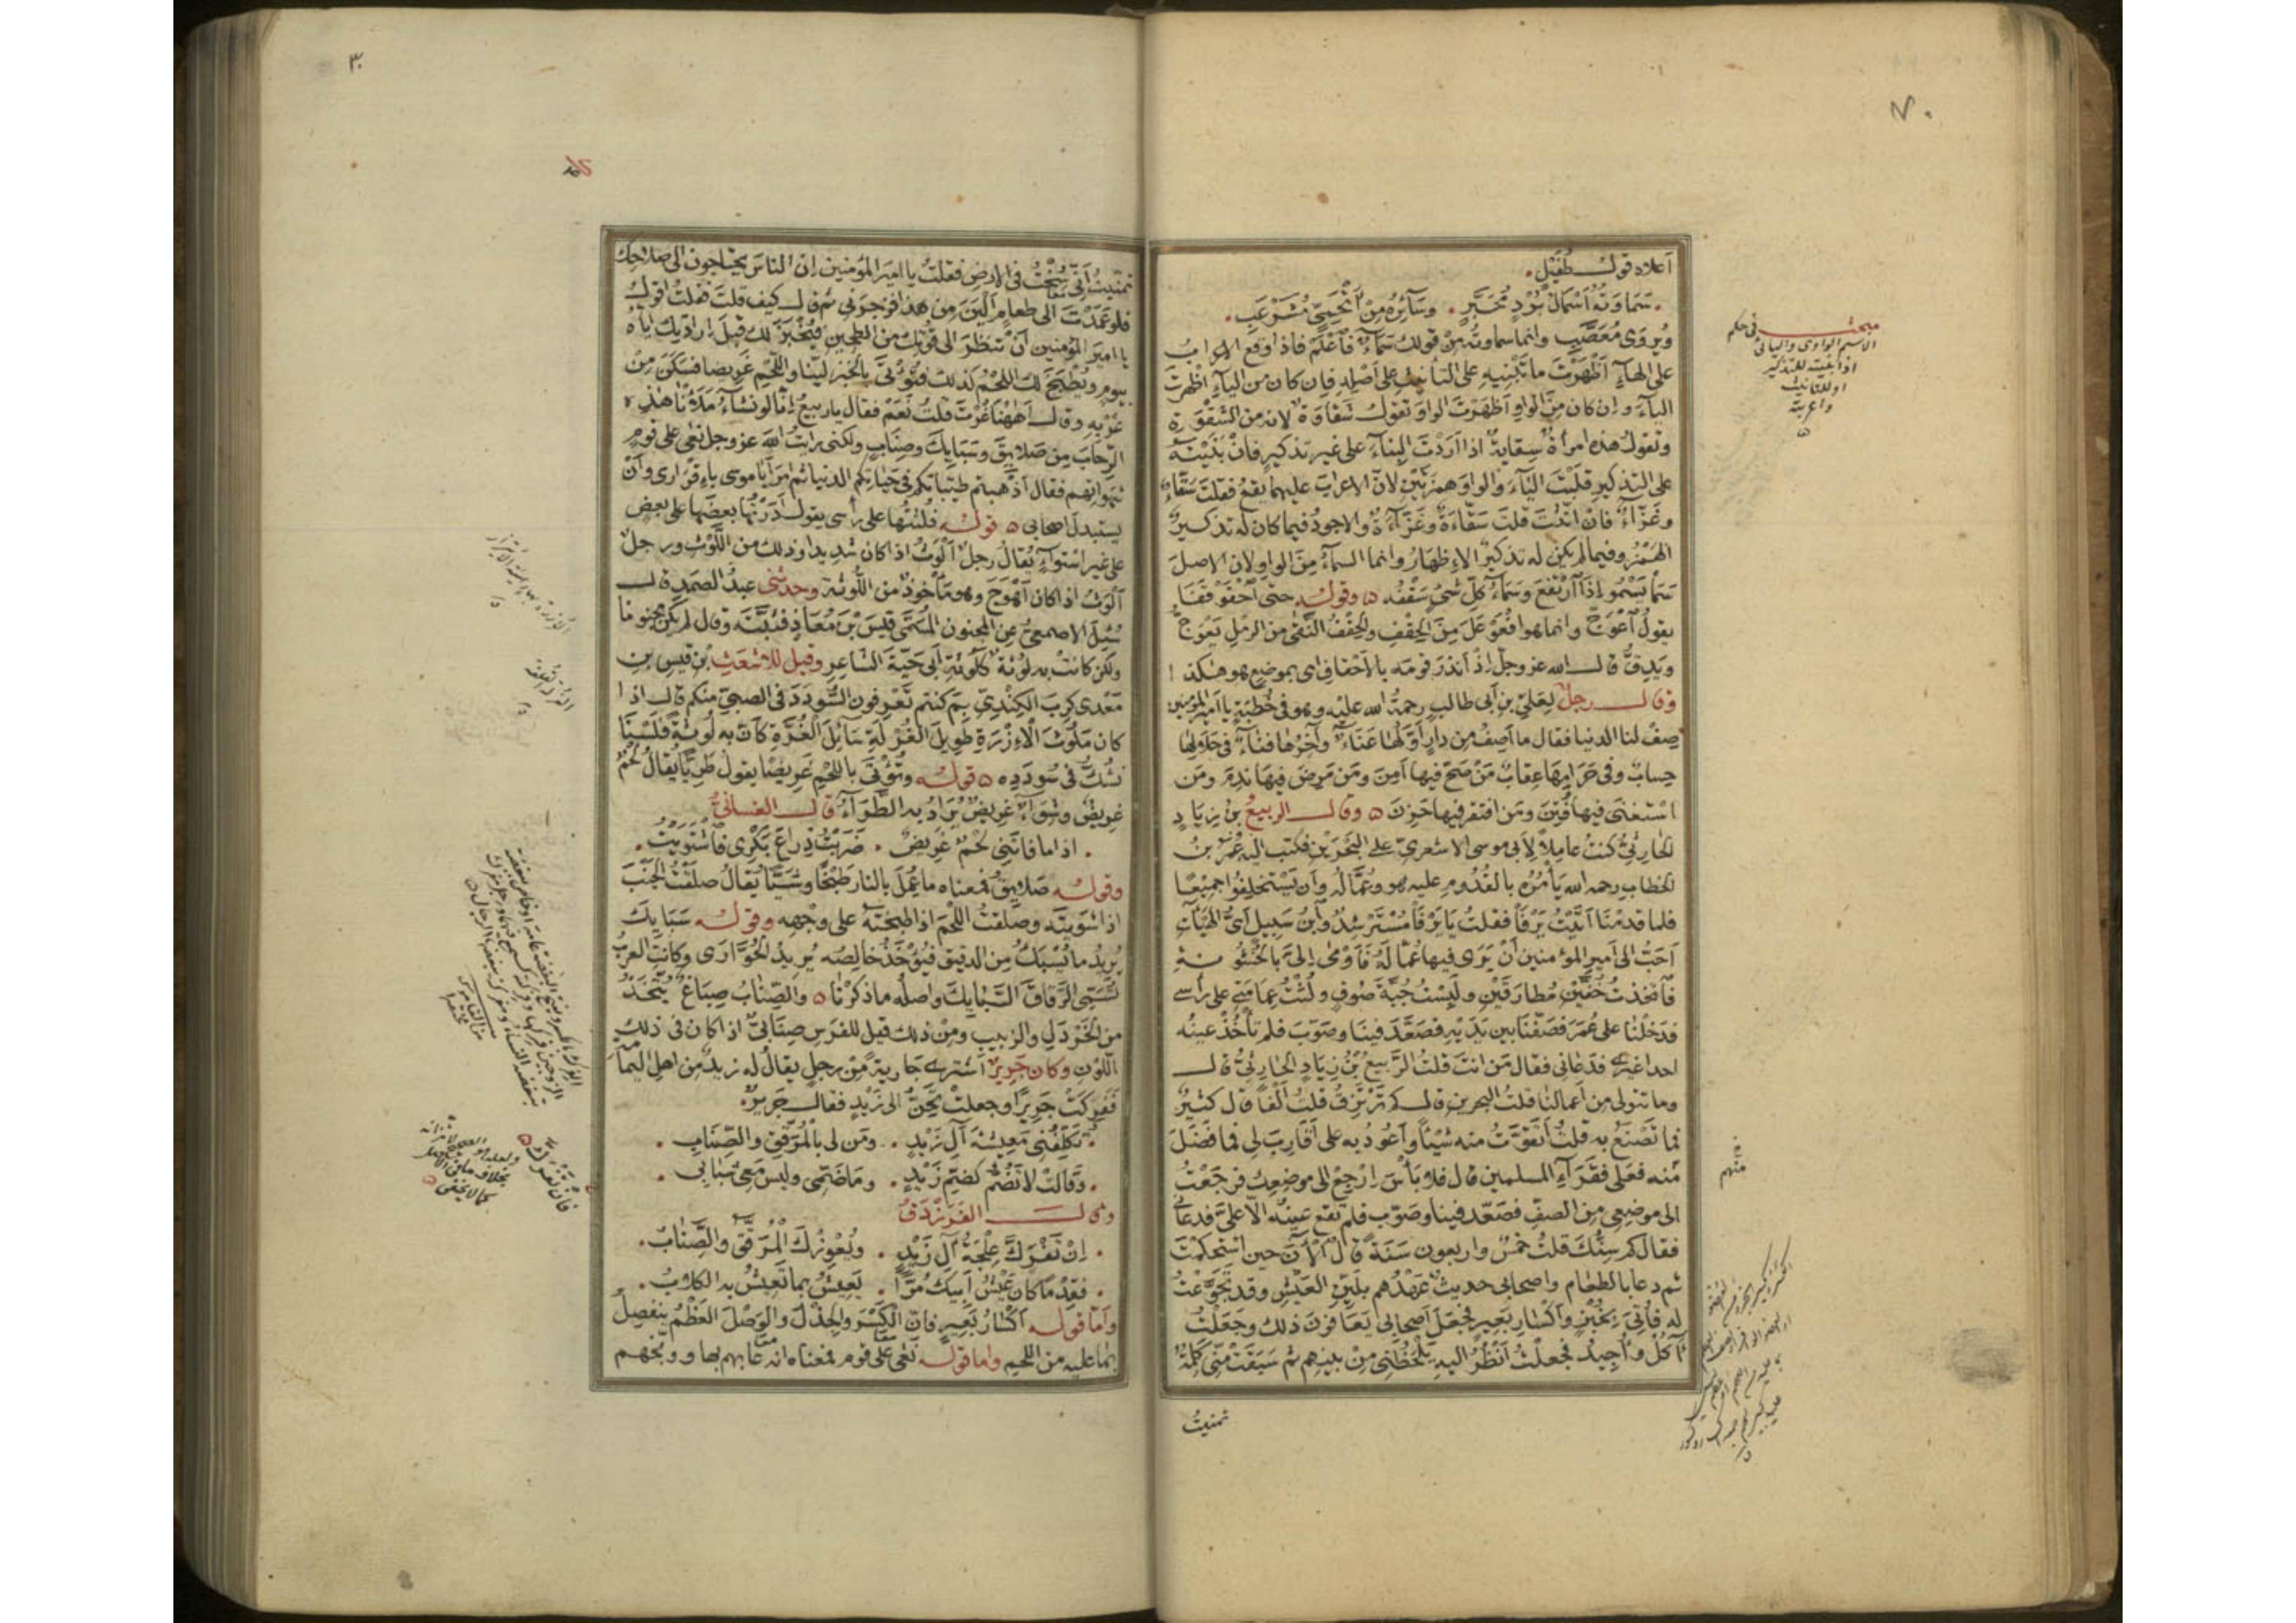 ٧٠
أعلاه قول طفيل
سماوته أسمال برد محبر وسائره من أتحمي مشرعب
ويروى معصب وانما سماوته من قولك سماء فاعلم فاذا وقع الاعراب
على الهاء أظهرت ما تبنيه على التأنيث على أصله فإن كان من الياء أظهرت
الياء وإن كان من الواو أظهرت الواو تقول شقاوة لانه من الشقوة
وتقول هذه امرأة سقاية اذا أردت البناء على غير تذكير فان بنيته
على التذكير قلبت الياء والواو همزتين لأن الاعراب عليهما يقع فقلت سقاء
وغزاء فان انثت قلت سقاءة وغزاءة والاجود فيما كان له تذكير
الهمز وفيما لم يكن له تذكير الإظهار وانما السماء من الواو لان الاصل
سما يسمو إذا ارتفع وسماء كل شئ سقفه ٥ وقوله حتى احقوقفا
يقول اعوج وانما هو افعوعل من الحقف والحقف النقى من الرمل يعوج
ويدق قال الله عز وجل إذ أنذر قومه بالأحقاف اى بموضع هو هكذا
وقال رجل لعلي بن أبي طالب رحمة الله عليه وهو في خطبة يا امير المؤمنين
صف لنا الدنيا فقال ما أصف من دار أولها عناء وآخرها فناء في حلالها
حساب وفي حرامها عقاب من صح فيها أمن ومن مرض فيها ندم ومن
استغنى فيها فتن ومن افتقر فيها حزن ٥ وقال الربيع بن زياد
الحارثي كنت عاملا لأبي موسى الاشعري على البحرين فكتب اليه عمر بن
الخطاب رحمه الله يأمره بالقدوم عليه هو وعماله وأن يستخلفوا جميعا
فلما قدمنا أتيت يرفأ فقلت يا يرفأ مسترشد وابن سبيل أي الهيآت
أحب الى أمير المؤمنين أن يرى فيها عماله فأومى إلي بالخشونة
فاتخذت خفين مطارقين ولبست جبة صوف ولثت عمامتي على رأسي
فدخلنا على عمر فصففنا بين يديه فصعد فينا وصوب فلم تأخذ عينه
احدا غيري فدعاني فقال من انت قلت الربيع بن زياد الحارثي قال
وما تتولى من أعمالنا قلت البحرين قال كم ترتزق قلت ألفا قال كثير
فما تصنع به قلت أتقوت منه شيئا وأعود به على أقارب لي فما فضل
منه فعلى فقراء المسلمين قال فلا بأس ارجع الى موضعك فرجعت
الى موضعي من الصف فصعد فينا وصوب فلم تقع عينه الا علي فدعاني
فقال كم سنك قلت خمس واربعون سنة قال الآن حين استحكمت
ثم دعا بالطعام واصحابي حديث عهدهم بلين العيش وقد تجوعت
له فأتي بخبز وأكسار بعير فجعل أصحابي يعافون ذلك وجعلت
آكل وأجيد فجعلت انظر اليه يلحظني من بينهم ثم سبقت مني كلمة
تمنيت
مبحث في حكم
الاسم الواوى واليائى
اذا بنيته للتذكير
او للتانيث
واعربته
منهم
٣٠
تمنيت أني سخت في الارض فقلت يا امير المؤمنين إن الناس يحتاجون الى صلاحك
فلو عمدت الى طعام ألين من هذا فزجرني ثم قال كيف قلت فقلت اقول
يا امير المؤمنين أن تنظر الى قوتك من الطحين فيخبز لك قبل إرادتك إياه
بيوم ويطبخ لك اللحم كذلك فتؤتى بالخبز لينا واللحم غريضا فسكن من
غربه وقال أههنا غرت قلت نعم فقال يا ربيع إنا لو نشاء ملأنا هذه
الرحاب من صلائق وسبايك وصناب ولكني رايت الله عز وجل نعى على قوم
شهواتهم فقال أذهبتم طيباتكم في حياتكم الدنيا ثم أمر أبا موسى باقراري وأن
يستبدل اصحابي ٥ قوله فلثتها على رأسي يقول أدرتها بعضها على بعض
على غير استواء يقال رجل ألوث اذا كان شديدا وذلك من اللوث ورجل
ألوث اذا كان أهوج وهو مأخوذ من اللوثة وحدثني عبد الصمد قال
سئل الاصمعي عن المجنون المسمى قيس بن معاذ فثبته وقال لم يكن مجنونا
ولكن كانت به لوثة كلوثة أبي حية الشاعر وقيل للاشعث بن قيس بن
معدى كرب الكندي بم كنتم تعرفون السودد في الصبي منكم قال اذا
كان ملوث الازرة طويل الغرلة سائل الغرة كأن به لوثة فلسنا
نشك في سودده ٥ قوله وتؤتى باللحم غريضا يقول طريا يقال لحم
غريض وشواء غريض يراد به الطراء قال الغساني
اذا ما فاتني لحم غريض ضربت ذراع بكري فاشتويت
وقوله صلائق فمعناه ما عمل بالنار طبخا وشيا يقال صلقت الجنب
اذا شويته وصلقت اللحم اذا طبخته على وجهه وقوله سبايك
يريد ما يسبك من الدقيق فيؤخذ خالصه يريد الحوارى وكانت العرب
تسمي الرقاق السبايك واصله ما ذكرنا ٥ والصناب صباغ يتخذ
من الخردل والزبيب ومن ذلك قيل للفرس صنابي اذا كان في ذلك
اللون وكان جرير اشترى جارية من رجل يقال له زيد من اهل اليمامة
ففركت جريرا وجعلت تحن الى زيد فقال جرير
تكلفني معيشة آل زيد ومن لي بالمرقق والصناب
وقالت لا تضم كضم زيد وما ضمي وليس معي شبابي
وقال الفرزدق
إن تفركك علجة آل زيد ويعوزك المرقق والصناب
فقدما كان عيش أبيك مرا يعيش بما تعيش به الكلاب
وأما قوله أكسار بعير فان الكسر والجذل والوصل العظم ينفصل
بما عليه من اللحم واما قوله نعى على قوم فمعناه انه عابهم بها ووبخهم